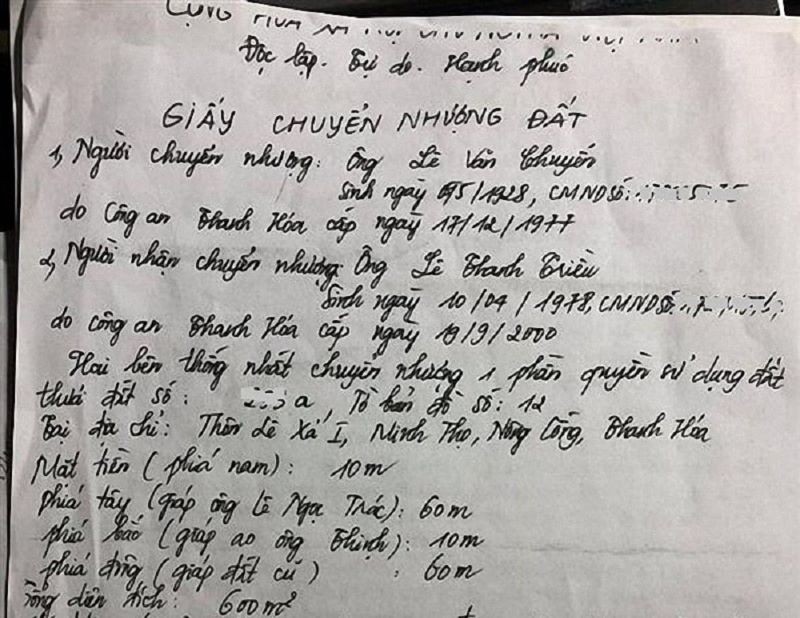 Độc lập. Tự do. Hạnh phúc
GIẤY CHUYỂN NHƯỢNG ĐẤT
1, Người chuyển nhượng: Ông Lê Văn Chuyến
Sinh ngày /1928, CMND Số:
do Công an Thanh Hóa cấp ngày 17/12/1977
2, Người nhận chuyển nhượng: Ông Lê Thanh Triều
Sinh ngày 10/04/1978, CMND Số:
do công an Thanh Hóa cấp ngày 19/9/2000
Hai bên thống nhất chuyển nhượng 1 phần quyền sử dụng đất
thưả đất số: a, Tờ bản đồ số: 12
Tại địa chỉ: Thôn Lê Xá I, Minh Thọ, Nông Cống, Thanh Hóa
Mặt tiền (phiá nam): 10m
phiá tây (giáp ông Lê Ngọc Trác): 60m
phiá bắc (giáp ao ông Thinh): 10m
phiá đông (giáp đất cũ): 60m
Tổng diện tích: 600m²